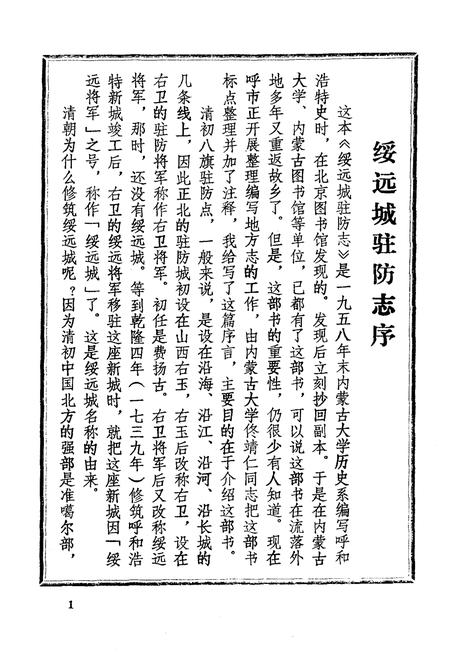 绥远城驻防志序
这本《绥远城驻防志》是一九五八年末内蒙古大学历史系编写呼和
浩特史时，在北京图书馆发现的。发现后立刻抄回副本。于是在内蒙古
大学、内蒙古图书馆等单位，已都有了这部书，可以说这部书在流落外
地多年又重返故乡了。但是，这部书的重要性，仍很少有人知道。现在
呼市正开展整理编写地方志的工作，由内蒙古大学佟靖仁同志把这部书
标点整理并加了注释，我给写了这篇序言，主要目的在于介绍这部书。
清初八旗驻防点，一般来说，是设在沿海、沿江、沿河、沿长城的
几条线上，因此正北的驻防城初设在山西右玉，右玉后改称右卫，设在
右卫的驻防将军称作右卫将军。初任是费扬古。右卫将军后又改称绥远
将军，那时，还没有绥远城。等到乾隆四年（一七三九年）修筑呼和浩
特新城竣工后，右卫的绥远将军移驻这座新城时，就把这座新城因「绥
远将军」之号，称作「绥远城」了。这是绥远城名称的由来。
清朝为什么修筑绥远城呢？因为清初中国北方的强部是准噶尔部，
1